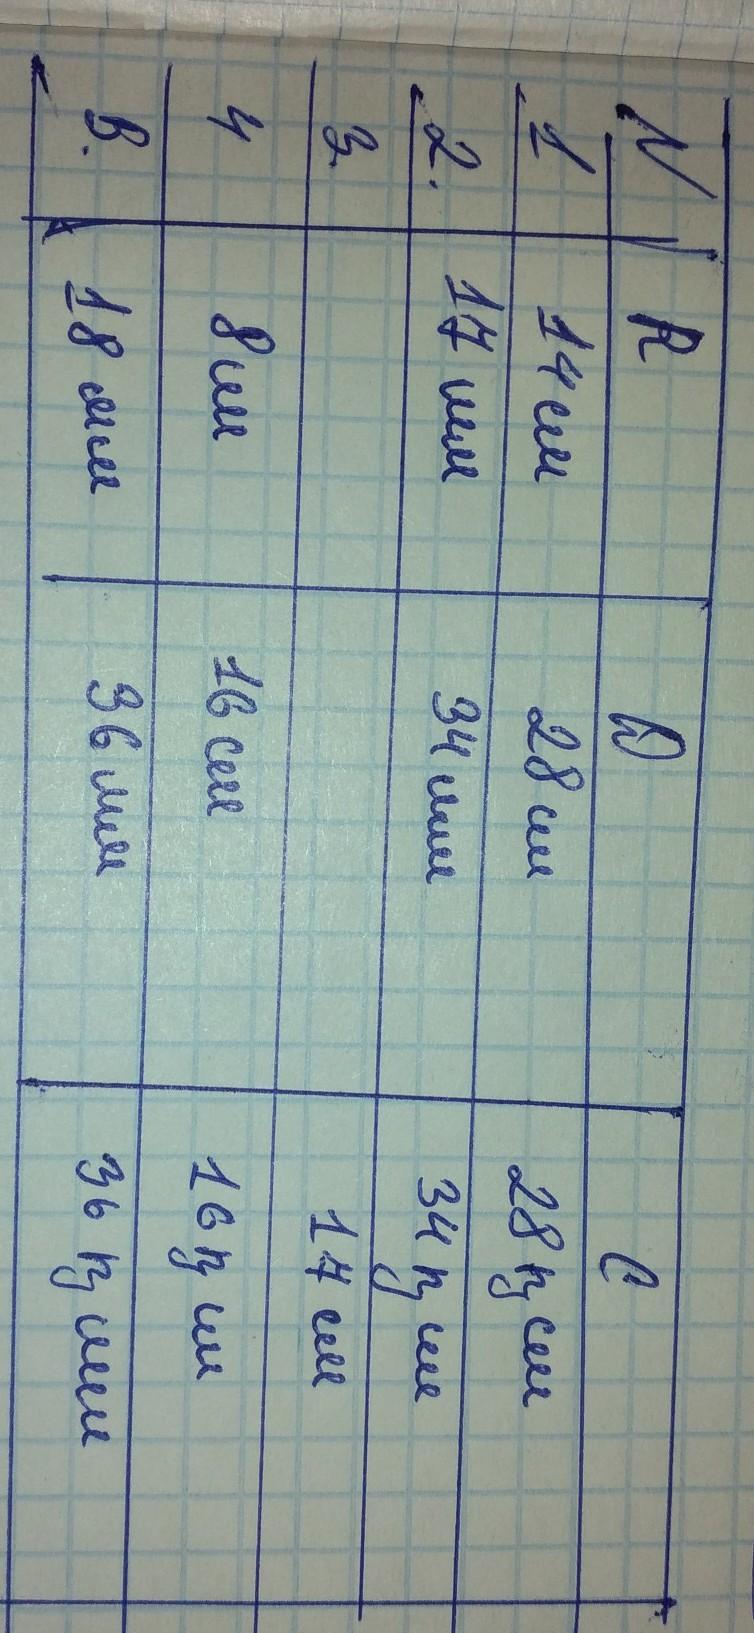 N R D C
1 14 см 28 см 28 π см
2. 17 мм 34 мм 34 π мм
3. 17 см
4 8 см 16 см 16 π см
В. 18 мм 36 мм 36 π мм